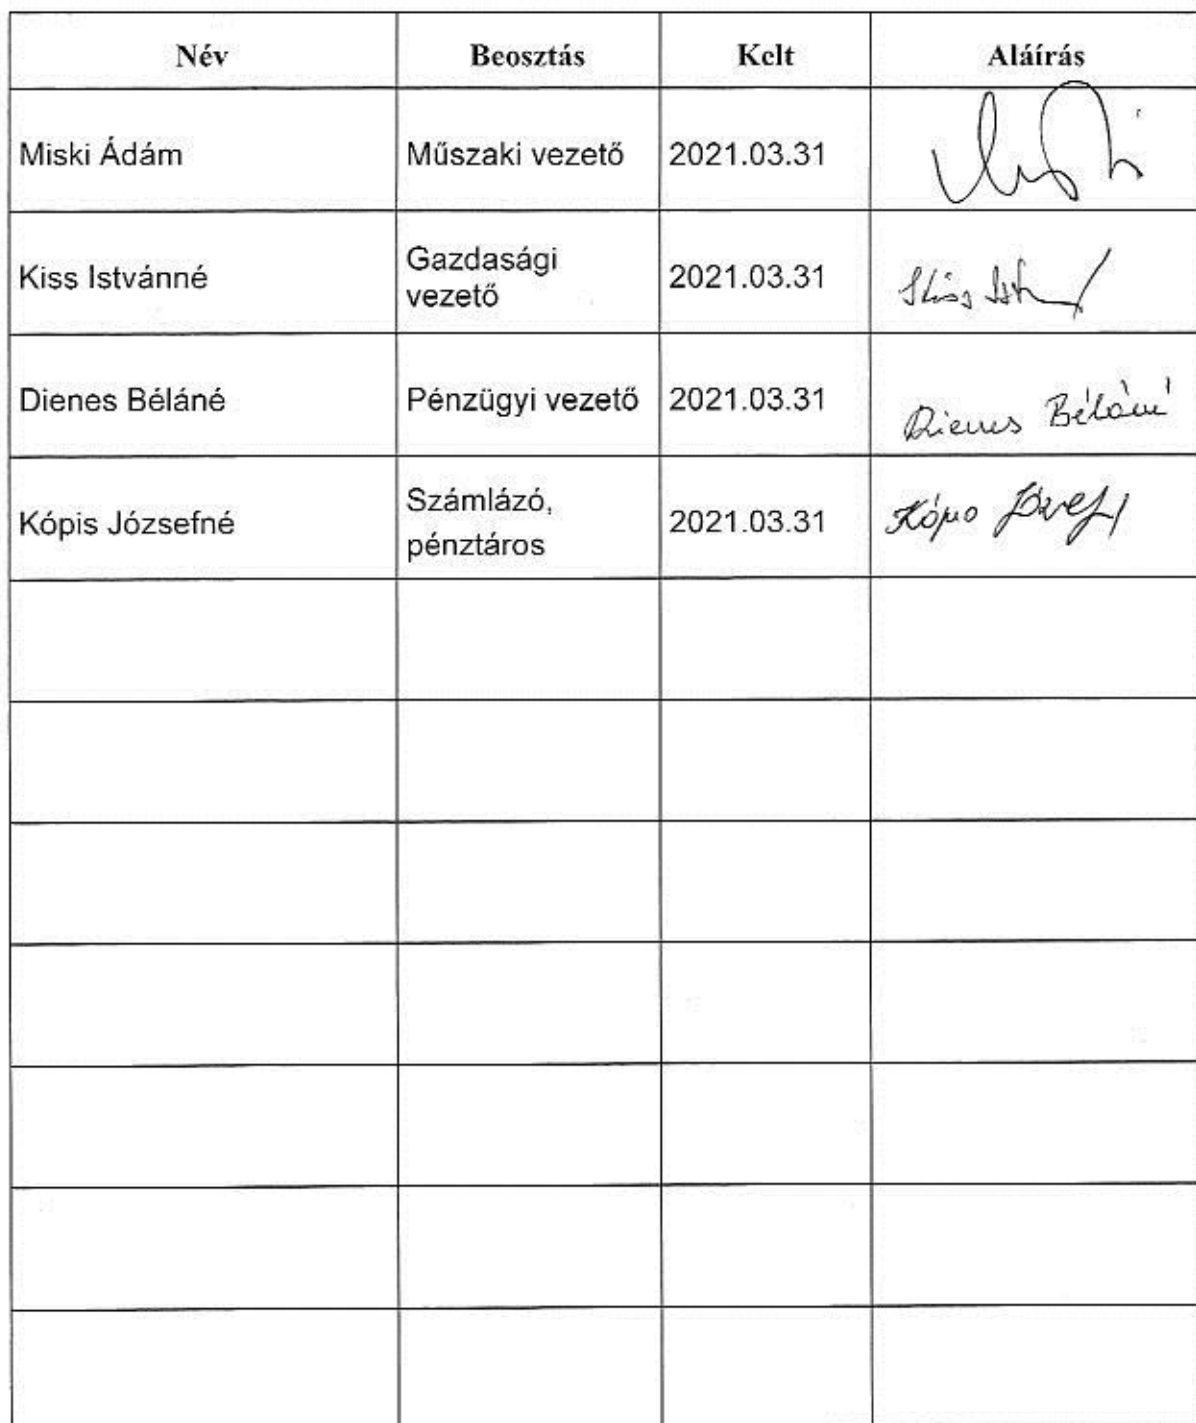 Név Beosztás Kelt Aláírás
Miski Ádám Műszaki vezető 2021.03.31
Kiss Istvánné Gazdasági vezető 2021.03.31
Dienes Béláné Pénzügyi vezető 2021.03.31 Dienes Béláné
Kópis Józsefné Számlázó, pénztáros 2021.03.31